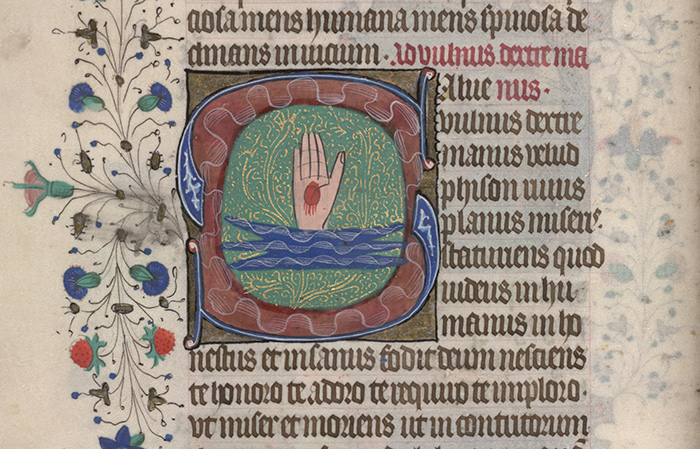 ciosa mens humana mens spinosa de
clinans in uicium. Ad vulnus dextre ma
Salue nus.
vulnus dextre
manus velud
phison uiuus
planus miseris
statuens quod
iudeus in hu
manus in ho
nestus et insanus fodit deum nesciens
te honoro te adoro te requiro te imploro.
vt miser et moriens ut in contutorum